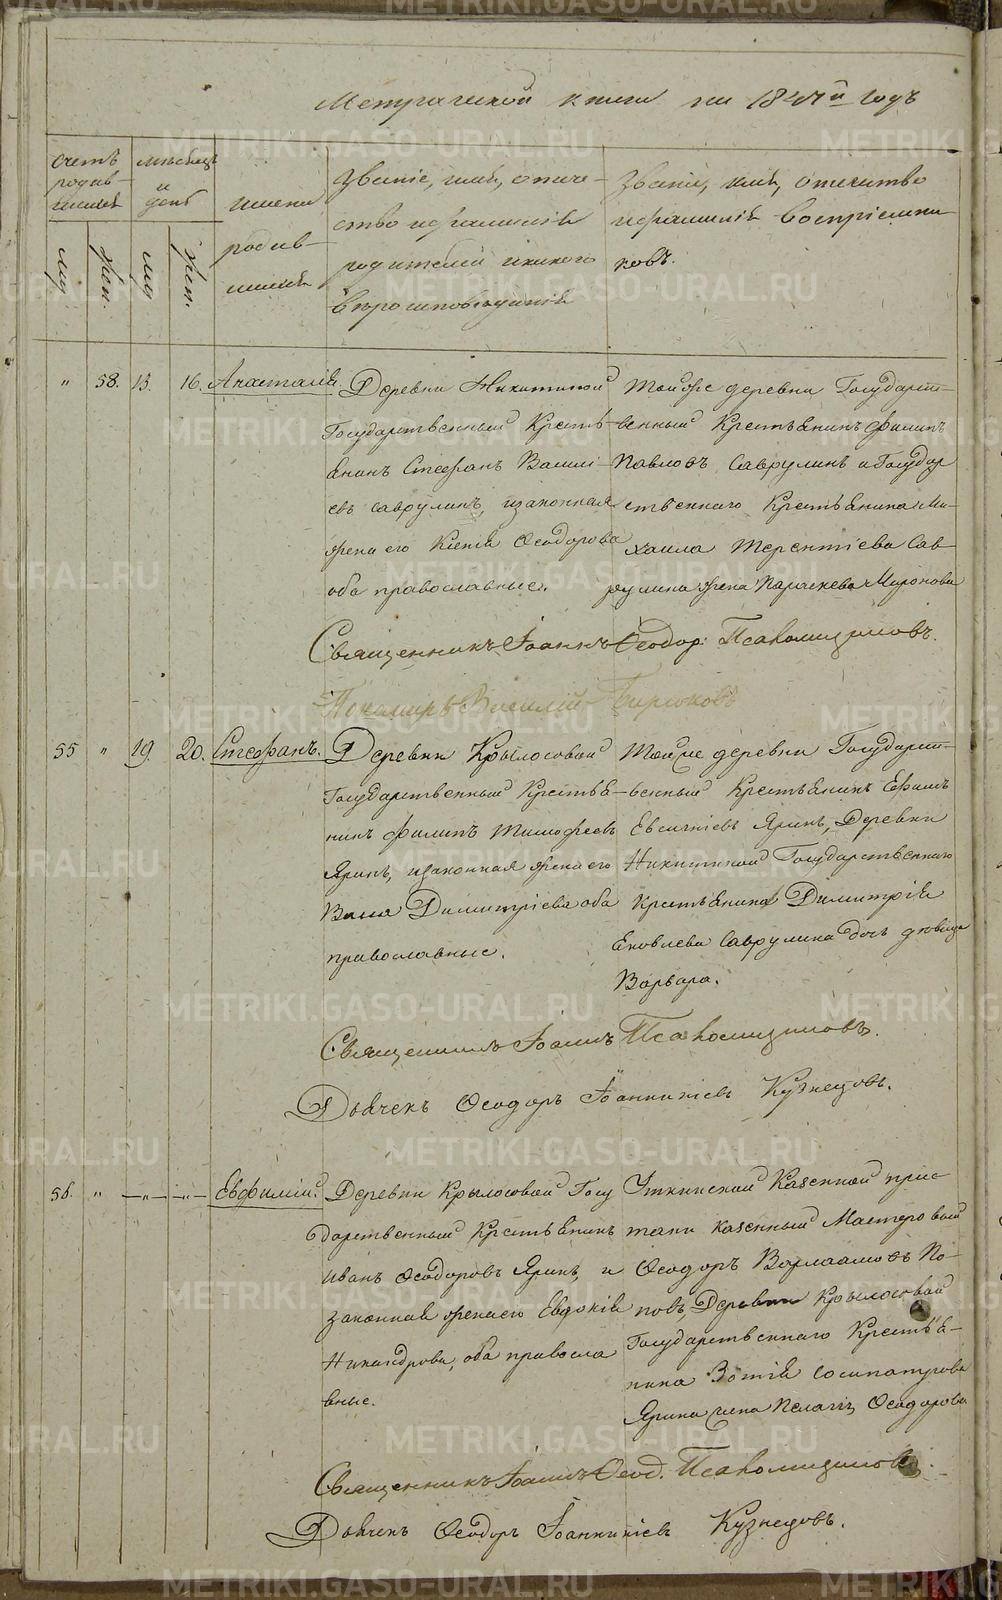 Метрической книги на 1847й годъ
Счетъ родившихся
мѣсяцъ и день
имена родившихся
Званіе, имя, отечество и фамилія родителей и какого вѣроисповѣданія
Званіе, имя, отечество и фамилія воспріемниковъ.
муж.
жен.
муж.
жен.
" 58. 13. 16. Анастасія.
Деревни Никитиной
Государственный Кресть-
янинъ Стефанъ Василі-
евъ Саврулинъ, изаконная
жена его Ксенія Ѳеодорова
оба православные.
Тойже деревни Государст-
венный Крестьянинъ Филипъ
Павловъ Саврулинъ и Государ
ственнаго Крестьянина Ми-
хаила Терентіева Сав-
рулина жена Параскева Миронова
Священникъ Іоаннъ Ѳеодор: Псаломщиковъ.
Пономарь Василій Бирюковъ
55 " 19. 20. Стефанъ.
Деревни Крылосовой
Государственный Крестья-
нинъ Филипъ Тимофеевъ
Яринъ, изаконная жена его
Васса Димитріева оба
православные.
Тойже деревни Государст-
венный Крестьянинъ Ефимъ
Евсигніевъ Яринъ, Деревни
Никитиной Государственнаго
Крестьянина Димитрія
Яковлева Саврулина дочь дѣвица
Варвара.
Священникъ Іоаннъ Псаломщиковъ.
Дьячекъ Ѳеодоръ Іоанникіевъ Кузнецовъ.
56. " —"— —"— Евфимій.
Деревни Крылосовой Госу
дарственный Крестьянинъ
Иванъ Ѳеодоровъ Яринъ, и
законная жена его Евдокія
Никандрова, оба правосла
вные.
Уткинской Казенной прис-
тани казенный Мастеровый
Ѳеодоръ Варлаамовъ По-
повъ, Деревни Крылосовой
Государственнаго Крестья-
нина Зотія Сосипатрова
Ярина жена Пелагія Ѳеодорова
Священникъ Іоаннъ Ѳеод. Псаломщиковъ.
Дьячекъ Ѳеодоръ Іоанникіевъ Кузнецовъ.
METRIKI.GASO-URAL.RU